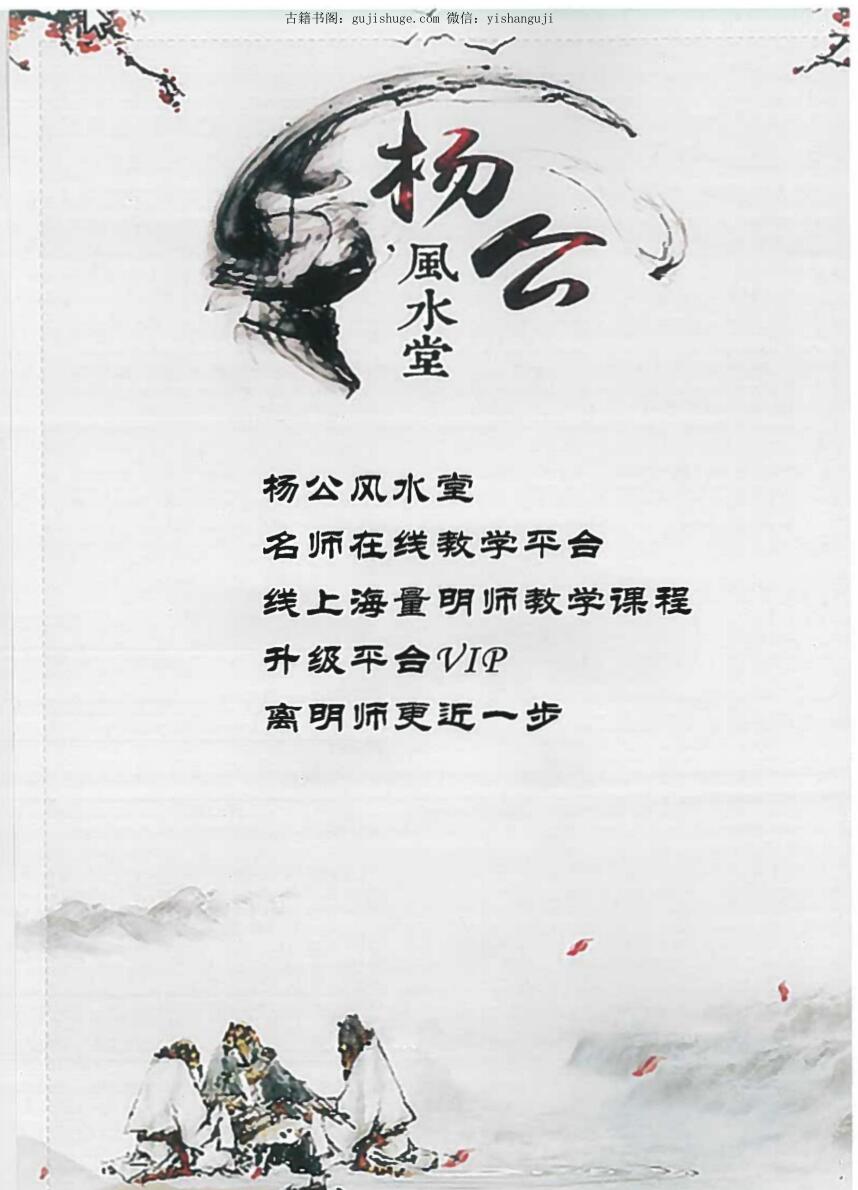 古籍书阁: gujishuge.com 微信: yishanguji
杨公
風水堂
杨公风水堂
名师在线教学平台
线上海量明师教学课程
升级平台VIP
离明师更近一步